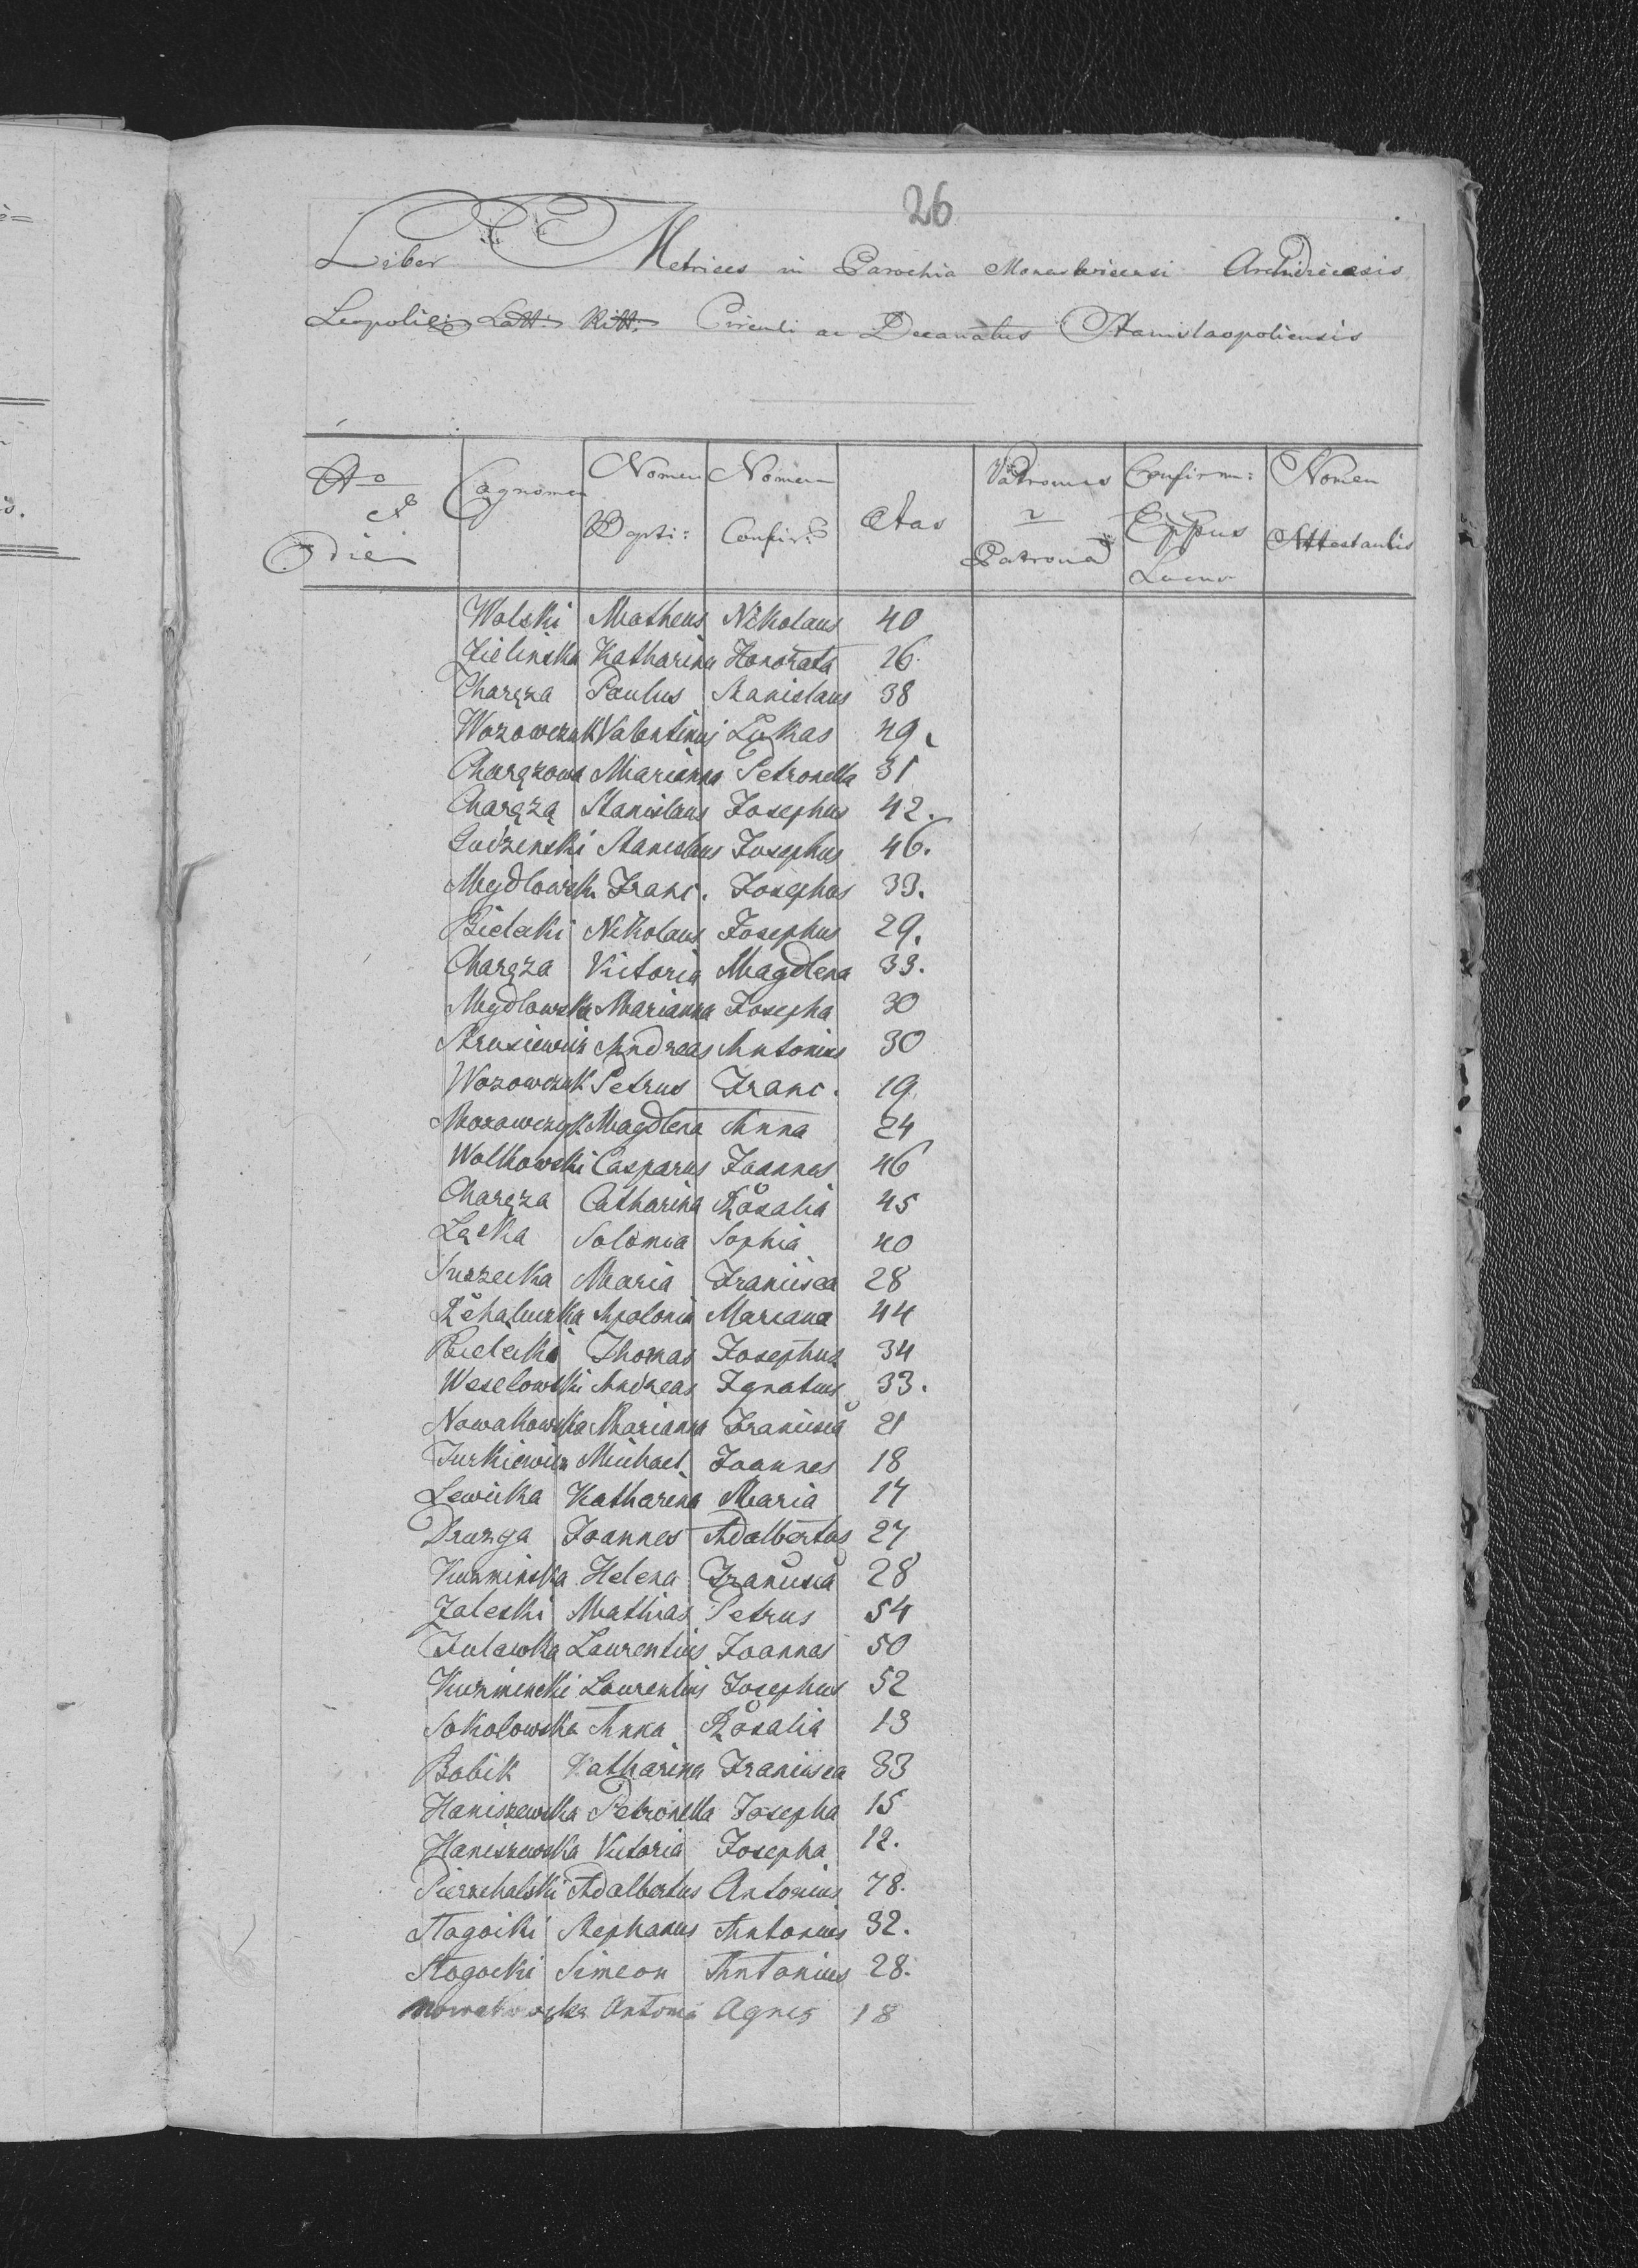 26
Liber Metrices in Parochia Monastericensi Archidiecesis
Leopoli: Latt: Ritt: Circuli ac Decanatus Stanislaopoliensis
Ao et die Cognomen Nomen Bapti: Nomen Confir: Etas Patronus v Patrona Confirm: Eppus Locus Nomen Attestantis
Wolski Matheus Nikolaus 40
Zielinska Katharina Honorata 26.
Charęza Paulus Stanislaus 38
Wozowczuk Valentinus Lukas 49.
Charęzowa Marianna Petronella 31
Charęzą Stanislaus Josephus 42.
Ludzenski Stanislaus Josephus 46.
Mydlowski Franc. Josephus 33.
Bielecki Nikolaus Josephus 29.
Charęza Victoria Magdlena 33.
Mydlowska Marianna Josepha 30
Strusiewicz Andreas Antonius 30
Wozowczuk Petrus Franc. 19
Morawczyk Magdlena Anna 24
Wolkowski Casparus Joannes 46
Charęza Catharina Rosalia 45
Lącka Solomea Sophia 40
Surzecka Maria Francisca 28
Apolonia Mariana 44
Bielecki Thomas Josephus 34
Weselowski Andreas Ignatius 33.
Nowakowska Marianna Francisca 21
Jurkiewicz Michael Joannes 18
Lewicka Katharina Maria 17
Druzga Joannes Adalbertus 27
Kuzminska Helena Francisca 28
Zaleski Mathias Petrus 54
Julawka Laurentius Joannes 50
Kuzminski Laurentius Josephus 52
Sokolowska Anna Rosalia 13
Bobik Katharina Francisca 33
Haniszewska Petronella Josepha 15
Haniszewska Victoria Josepha 12.
Pierzchalski Adalbertus Antonius 78.
Stogocki Stephanus Antonius 32.
Stogocki Simeon Antonius 28.
Nowakowska Antonia Agnes 18